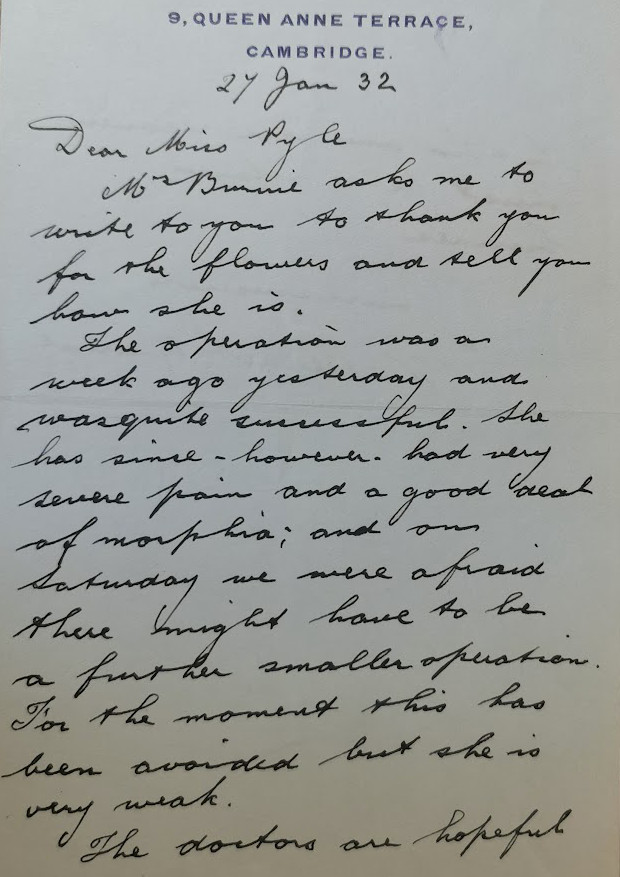 9, QUEEN ANNE TERRACE,
CAMBRIDGE.
27 Jan 32
Dear Miss Pyle
Mrs Burnie asks me to
write to you to thank you
for the flowers and tell you
how she is.
The operation was a
week ago yesterday and
was quite successful. She
has since - however - had very
severe pain and a good deal
of morphia; and on
Saturday we were afraid
there might have to be
a further smaller operation.
For the moment this has
been avoided but she is
very weak.
The doctors are hopeful